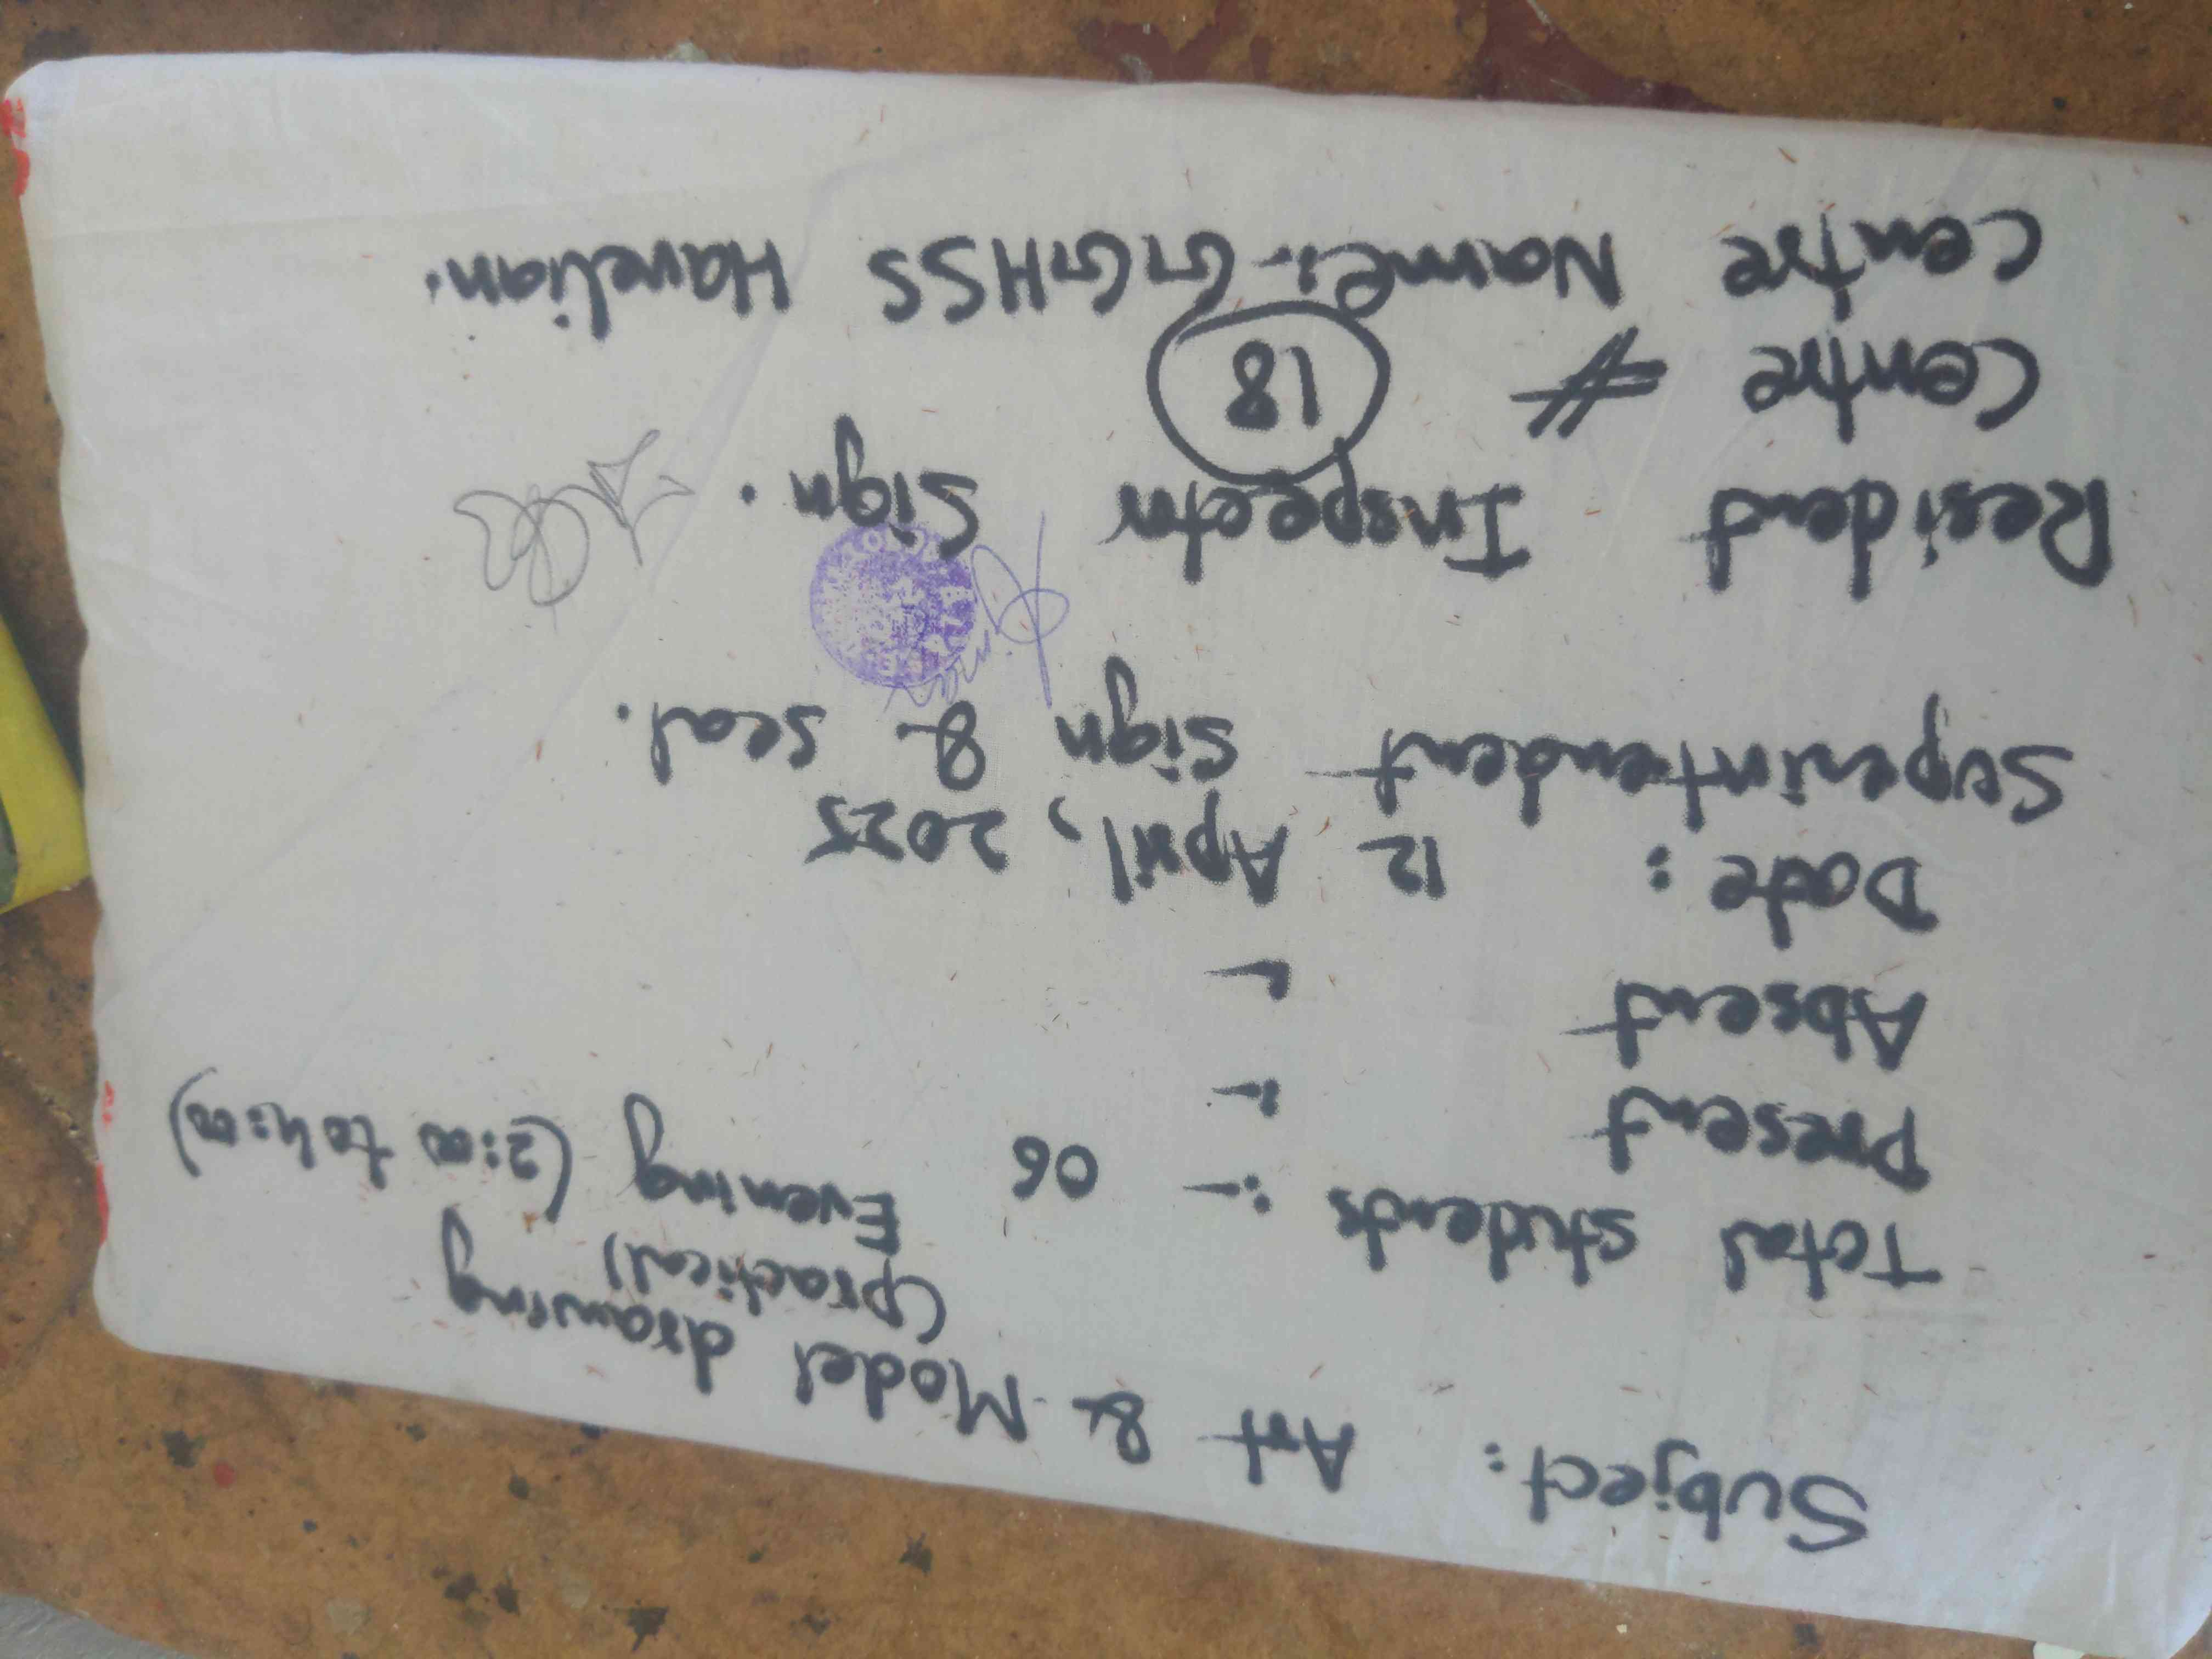 Subject: Art & Model drawing
(practical)
Total students :- 06 Evening (2:00 to 4:00)
Present :-
Absent :-
Date: 12 April, 2025
Superintendent Sign & Seal.
Resident Inspector Sign.
Centre # 18
Centre Name:- GGHSS Havelian.